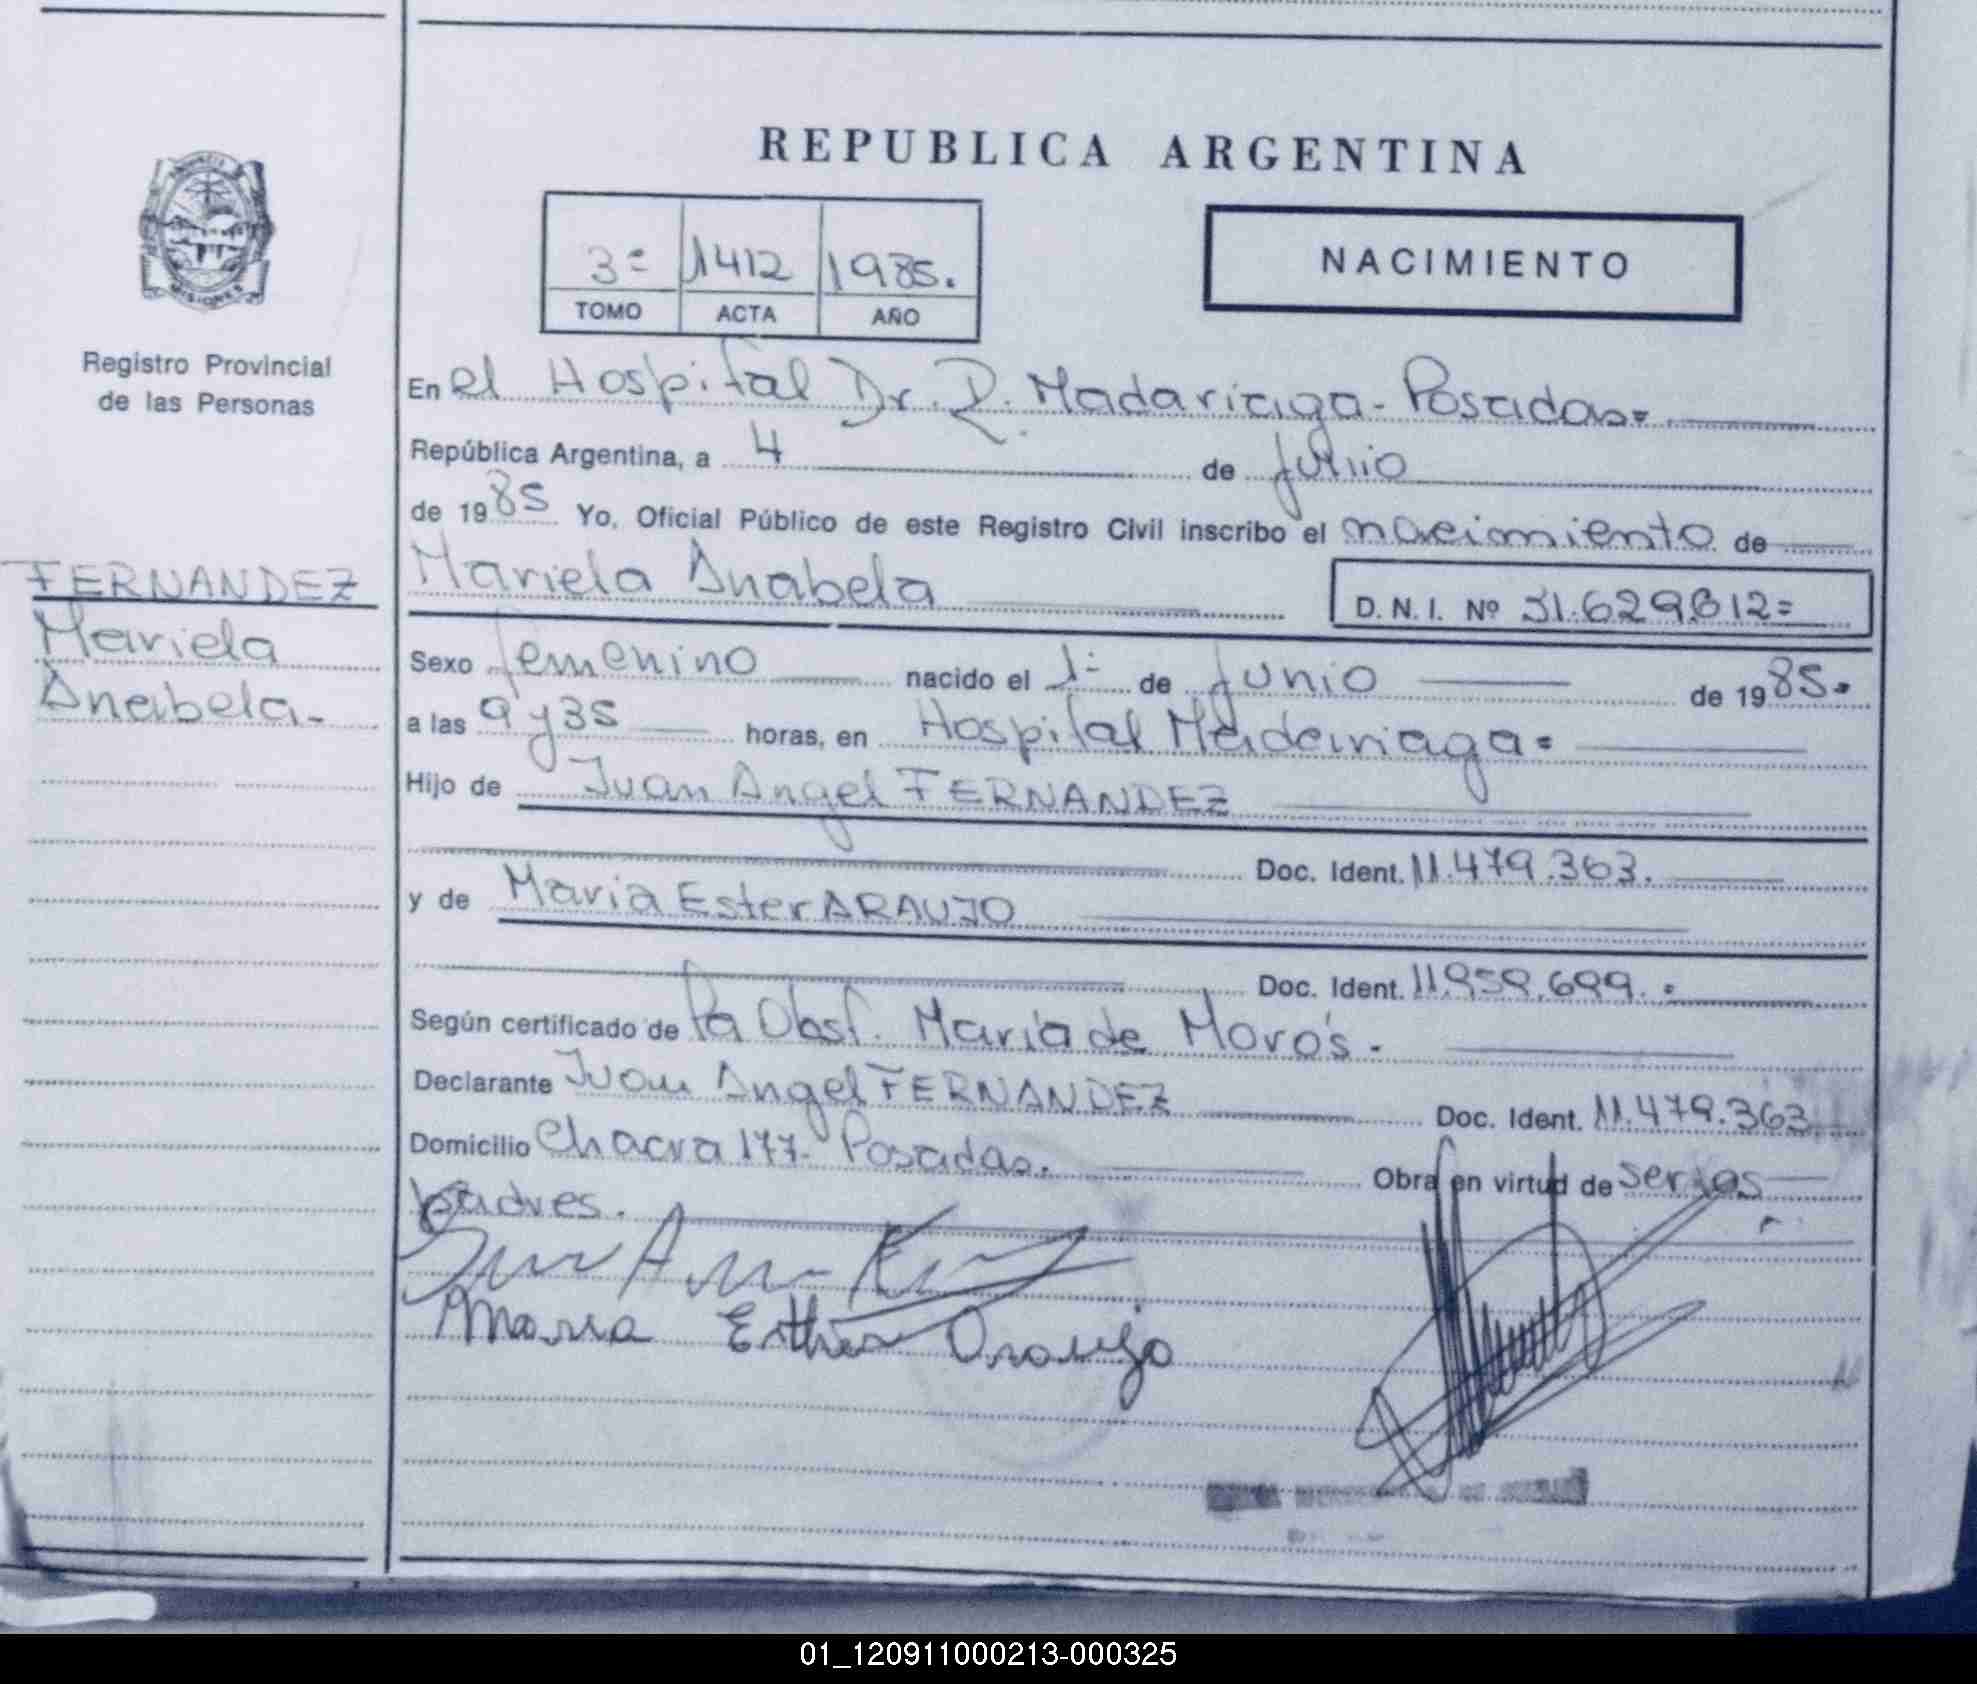 REPUBLICA ARGENTINA
3º 1412 1985.
TOMO ACTA AÑO
NACIMIENTO
MISIONES
Registro Provincial
de las Personas
FERNANDEZ
Mariela
Anabela.-
En el Hospital Dr. R. Madariaga - Posadas=
República Argentina, a 4 de junio
de 1985 Yo, Oficial Público de este Registro Civil inscribo el nacimiento de
Mariela Anabela D. N. I. Nº 31.629.812=
Sexo femenino nacido el 1º de junio de 1985.
a las 9 y 35 horas, en Hospital Madariaga=
Hijo de Juan Angel FERNANDEZ
Doc. Ident. 11.479.363.
y de Maria Ester ARAUJO
Doc. Ident. 11.959.699.=
Según certificado de la Obst. Maria de Moro's.-
Declarante Juan Angel FERNANDEZ Doc. Ident. 11.479.363
Domicilio Chacra 177- Posadas. Obra en virtud de ser los
padres.
Maria Esther Araujo
01_120911000213-000325